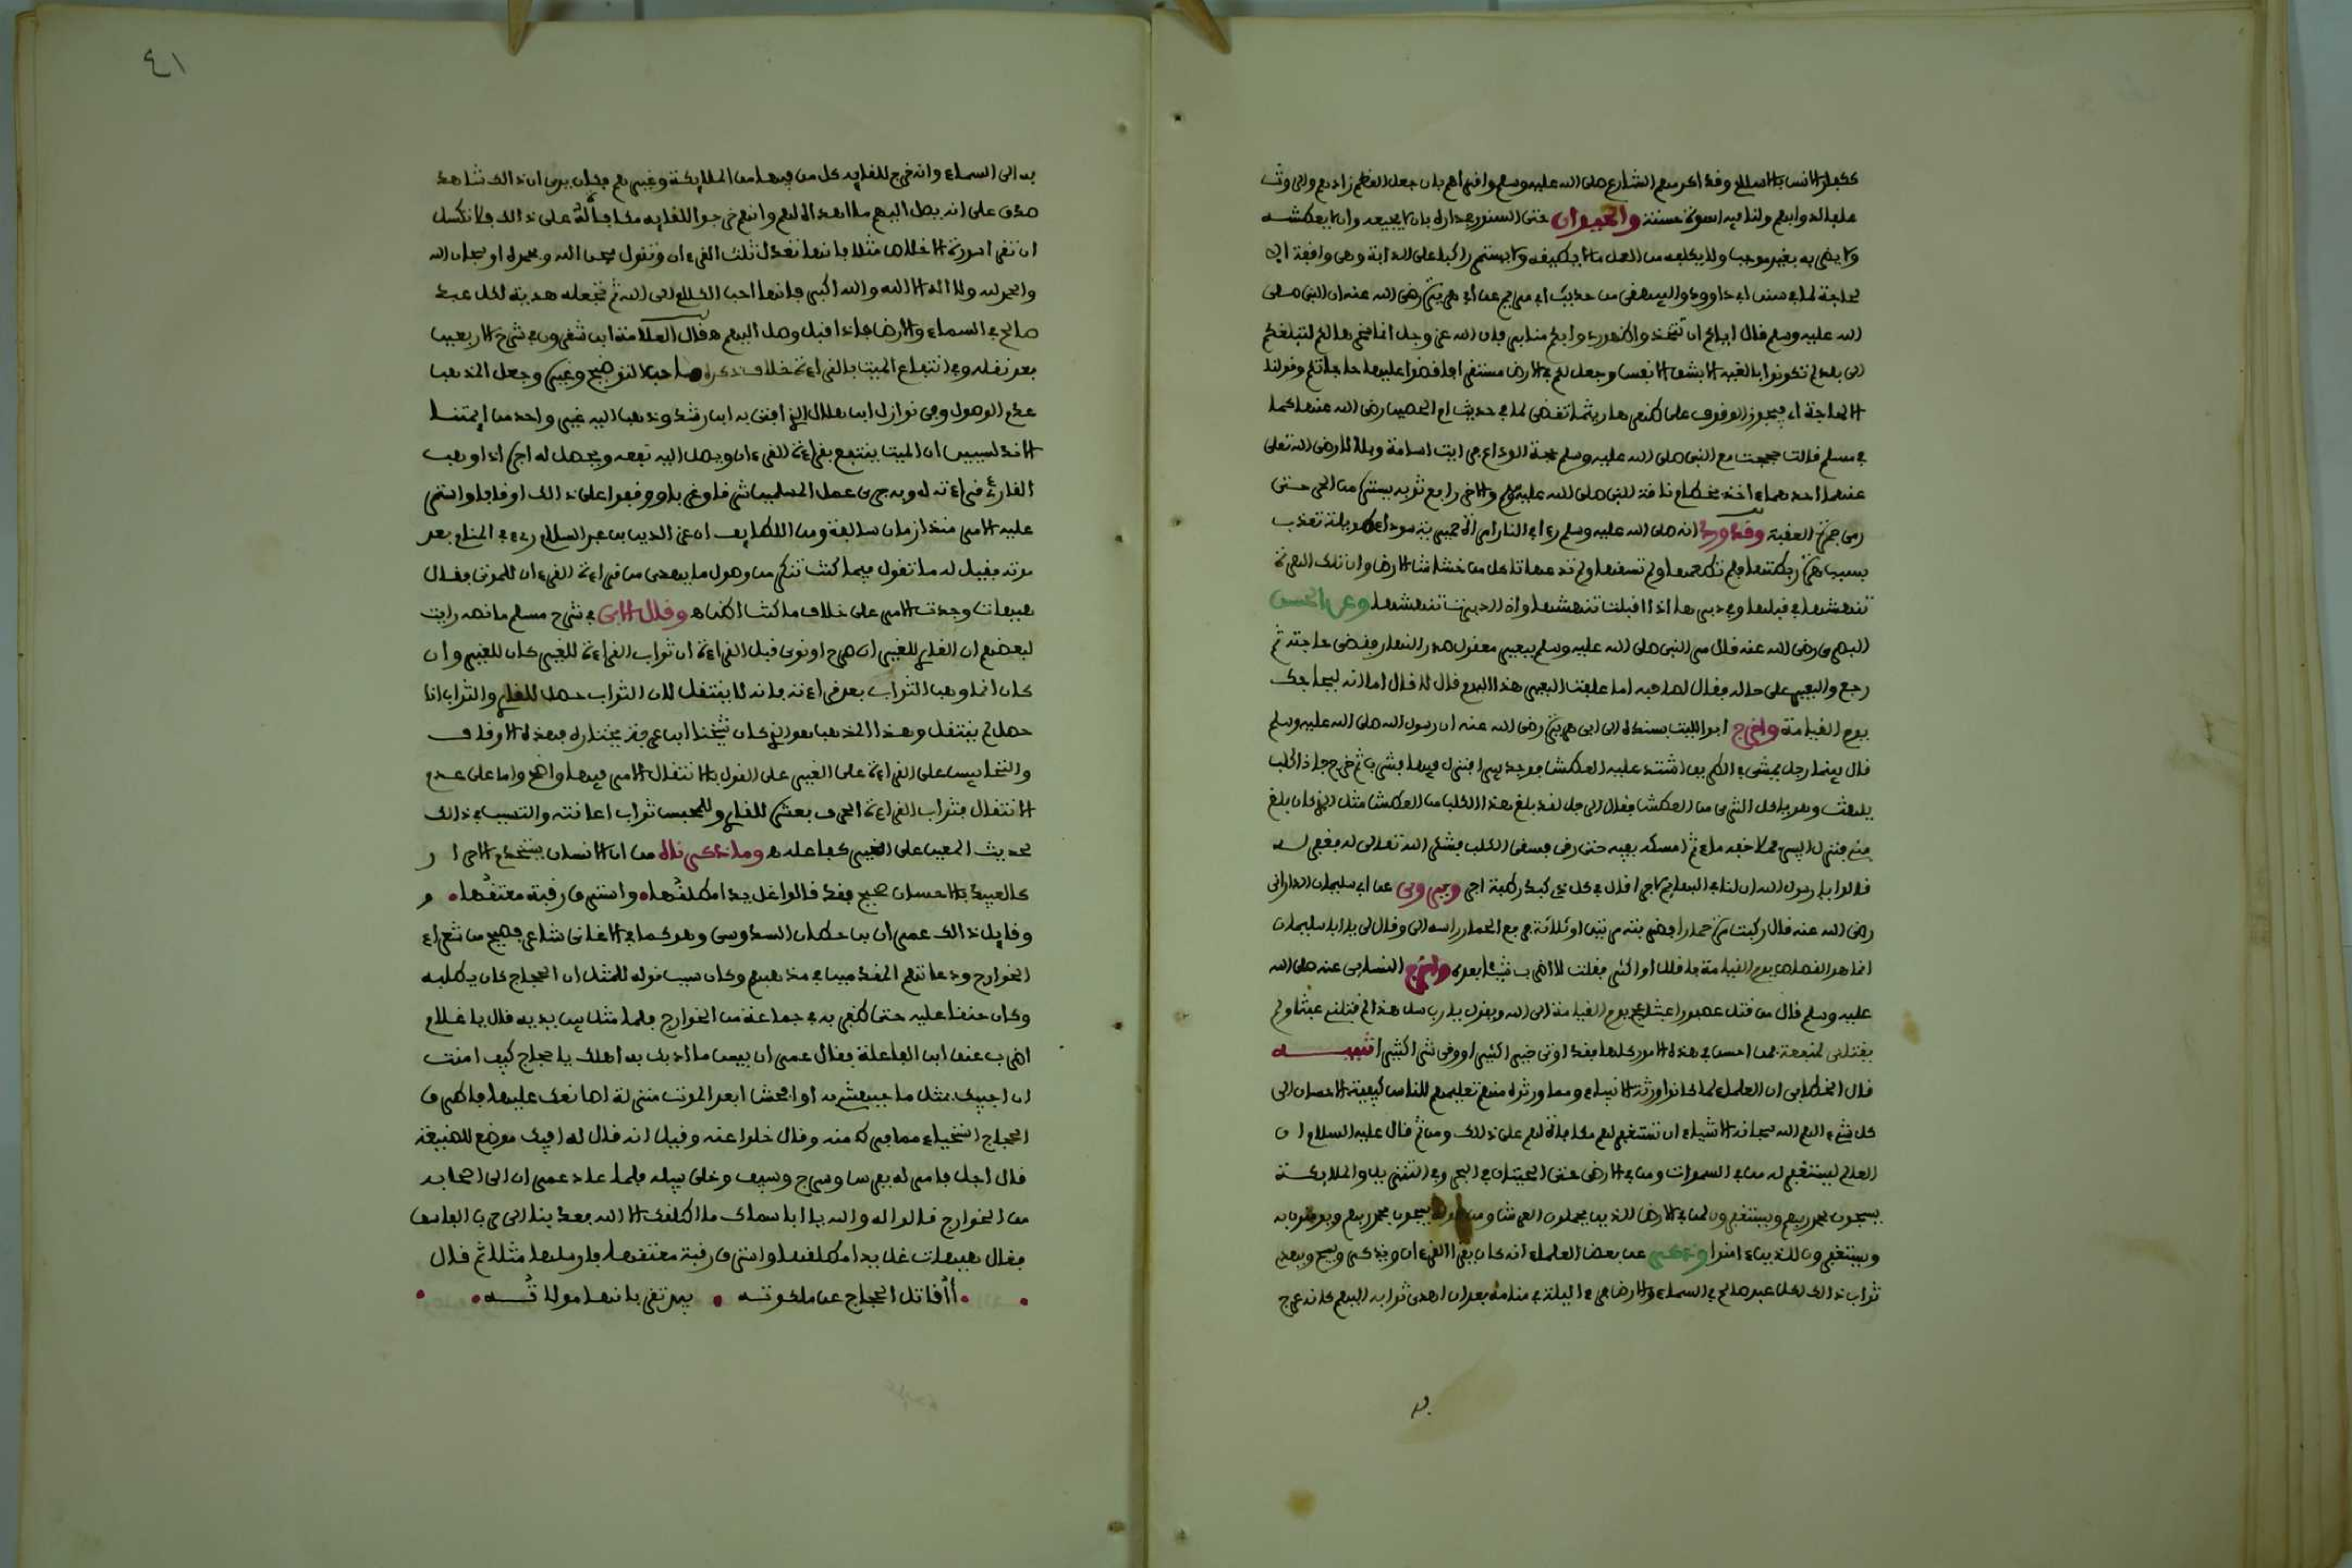 علفا لدوابهم ولنا فيه اسوة حسنة والحيوان حتى السنور بداره بان لا يجيعه وان لا يعطشه
ولا يضربه بغير موجب ولا يكلفه من العمل ما لا يطيقه ولا يستمر راكبا على الدابة وهي واقفة الا
لحاجة لما في سنن ابي داوود والبيهقي من حديث ابي مريم عن ابي هريرة رضي الله عنه ان النبي صلى
الله عليه وسلم قال اياكم ان تتخذوا ظهور دوابكم منابر فان الله عز وجل انما سخرها لكم لتبلغكم
الى بلد لم تكونوا بالغيه الا بشق الانفس وجعل لكم الارض مستقرا فاقضوا عليها حاجاتكم وقولنا
الا لحاجة اي فيجوز الوقوف على ظهرها ريثما تقضى لما في حديث ام الحصين رضي الله عنها كما
في مسلم قالت حججت مع النبي صلى الله عليه وسلم حجة الوداع فرايت اسامة وبلالا رضي الله تعلى
عنهما احدهما ءاخذ بخطام ناقة النبي صلى الله عليه وسلم والاخر رافع ثوبه يستره من الحر حتى
رمى جمرة العقبة وقد ورد انه صلى الله عليه وسلم رءا في النار امراة حميرية سوداء طويلة تعذب
بسبب هرة ربطتها فلم تطعمها ولم تسقها ولم تدعها تاكل من خشاش الارض وان تلك الهرة
تنهشها في قبلها وفي دبرها اذا اقبلت تنهشها واذا ادبرت تنهشها وعن الحسن
البصري رضي الله عنه قال مر النبي صلى الله عليه وسلم ببعير معقول صدر النهار فقضى حاجته ثم
رجع والبعير على حاله فقال لصاحبه اما علفت البعير هذا اليوم قال لا قال اما انه ليحاجك
يوم القيامة واخرج ابو الليث بسنده الى ابي هريرة رضي الله عنه ان رسول الله صلى الله عليه وسلم
قال بينما رجل يمشي في الطريق اشتد عليه العطش فوجد بيرا فنزل فيها فشرب ثم خرج فاذا كلب
يلهث وهو ياكل الثرى من العطش فقال الرجل لقد بلغ هذا الكلب من العطش مثل الذي كان بلغ
مني فنزل البير فملا خفه ماء ثم امسكه بفيه حتى رقى فسقى الكلب فشكر الله تعالى له فغفر له
قالوا يا رسول الله ان لنا في البهايم لاجرا قال في كل ذي كبد رطبة اجر ويروى عن ابي سليمان الداراني
رضي الله عنه قال ركبت مرة حمارا فضربته مرتين او ثلاثة فرفع الحمار راسه الي وقال لي يا ابا سليمان
انما هو القصاص يوم القيامة فاقلل او اكثر فقلت لا اضرب شيئا بعده واخرج النساءي عنه صلى الله
عليه وسلم قال من قتل عصفورا عبثا عج يوم القيامة الى الله ويقول يا رب سل هذا لم قتلني عبثا ولم
يقتلني لمنفعة فمن احسن في هذه الامور كلها فقد اوتي خيرا كثيرا ووقي شرا كثيرا تنبيه
قال الخطابي ان العلماء لما كانوا ورثة الانبياء ومما ورثوه منهم تعليمهم للناس كيفية الاحسان الى
كل شيء الهم الله سبحانه الاشياء ان تستغفر لهم مكافاة لهم على ذلك ومن ثم قال عليه السلام ان
العالم ليستغفر له من في السموات ومن في الارض حتى الحيتان في البحر وفي التنزيل والملايكة
يسبحون بحمد ربهم ويستغفرون لمن في الارض الذين يحملون العرش ومن حوله يسبحون بحمد ربهم ويومنون به
ويستغفرون للذين ءامنوا وذكر عن بعض العلماء انه كان يقرا القرءان ويذكر ويسبح ويهدي
ثواب ذالك لكل عبد صالح في السماء والارض فرءا ليلة في منامه بعد ان اهدى ثوابه اليهم كانه عرج

٤١
به الى السماء وانه خرج للقايه كل من فيها من الملايكة وغيرهم فكان يرى ان ذالك شاهد
صدق على انه يصل اليهم ما اهداه لهم وانهم خرجوا للقايه مكافاة له على ذالك فلا تكسل
ان تقرا سورة الاخلاص مثلا فانها تعدل ثلث القرءان وتقول سبحان الله وبحمده او سبحان الله
والحمد لله ولا اله الا الله والله اكبر فانها احب الكلام الى الله ثم تجعله هدية لكل عبد
صالح في السماء والارض فاذا قيل وصل اليهم ه قال العلامة ابن شقرون في شرح الاربعين
بعد نقله وفي انتفاع الميت بالقراءة خلاف ذكره صاحب التوضيح وغيره وجعل المذهب
عدم الوصول وفي نوازل ابن هلال الذي افتى به ابن رشد وذهب اليه غير واحد من ايمتنا
الاندلسيين ان الميت ينتفع بقراءة القرءان ويصل اليه نفعه ويحصل له اجره اذا وهب
القارئ قراءته له وبه جرى عمل المسلمين شرقا وغربا ووقفوا على ذالك اوقافا واستمر
عليه الامر منذ ازمان سالفة ومن اللطايف ان عز الدين بن عبد السلام رءي في المنام بعد
موته فقيل له ما تقول فيما كنت تنكر من وصول ما يهدى من قراءة القرءان للموتى فقال
هيهات وجدت الامر على خلاف ما كنت اظن اه وقال الابي في شرح مسلم ما نصه رايت
لبعضهم ان القاري للغير ان صرح او نوى قبل القراءة ان ثواب القراءة للغير كان للغير وان
كان انما وهب الثواب بعد قراءته فانه لا ينتقل لان الثواب حصل للقاري والثواب اذا
حصل لم ينتقل وهذا المذهب هو الذي كان شيخنا ابن عرفة يختاره فهذه الاوقاف
والتحابيس على القراءة على الغير على القول بالانتقال الامر فيها واضح واما على عدم
الانتقال فثواب القراءة الحرف بعشر للقاري وللمحبس ثواب اعانته والتسبب في ذالك
لحديث المعين على الخير كفاعله ه وما ذكرناه من ان الانسان يستخدم الاحرار
كالعبيد بالاحسان صحيح فقد قالوا غل يدا مطلقها واسترق رقبة معتقها
وقايل ذالك عمران بن حطان السدوسي وهو كما في الاغاني شاعر فصيح من شعراء
الخوارج ودعاتهم المقدمين في مذهبهم وكان سبب قوله للمثل ان الحجاج كان يطلبه
وكان حنقا عليه حتى ظفر به في جماعة من الخوارج فلما مثل بين يديه قال يا غلام
اضرب عنق ابن الفاعلة فقال عمران بيس ما ادبك به اهلك يا حجاج كيف امنت
ان اجيبك بمثل ما جبهتني به او افحش ابعد الموت منزلة اصانعك عليها فاطرق
الحجاج استحياء مما جبهه منه وقال خلوا عنه وقيل انه قال له افيك موضع للصنيعة
قال اجل فامر له بفرس وسرج وسيف وخلى سبيله فلما عاد عمران الى اصحابه
من الخوارج قالوا له والله يا ابا سماك ما اطلقك الا الله فعد بنا الى حرب الفاسق
فقال هيهات غل يدا مطلقها واسترق رقبة معتقها فارسلها مثلا ثم قال
أأقاتل الحجاج عن ملكوته بيد تقر بانها مولاته